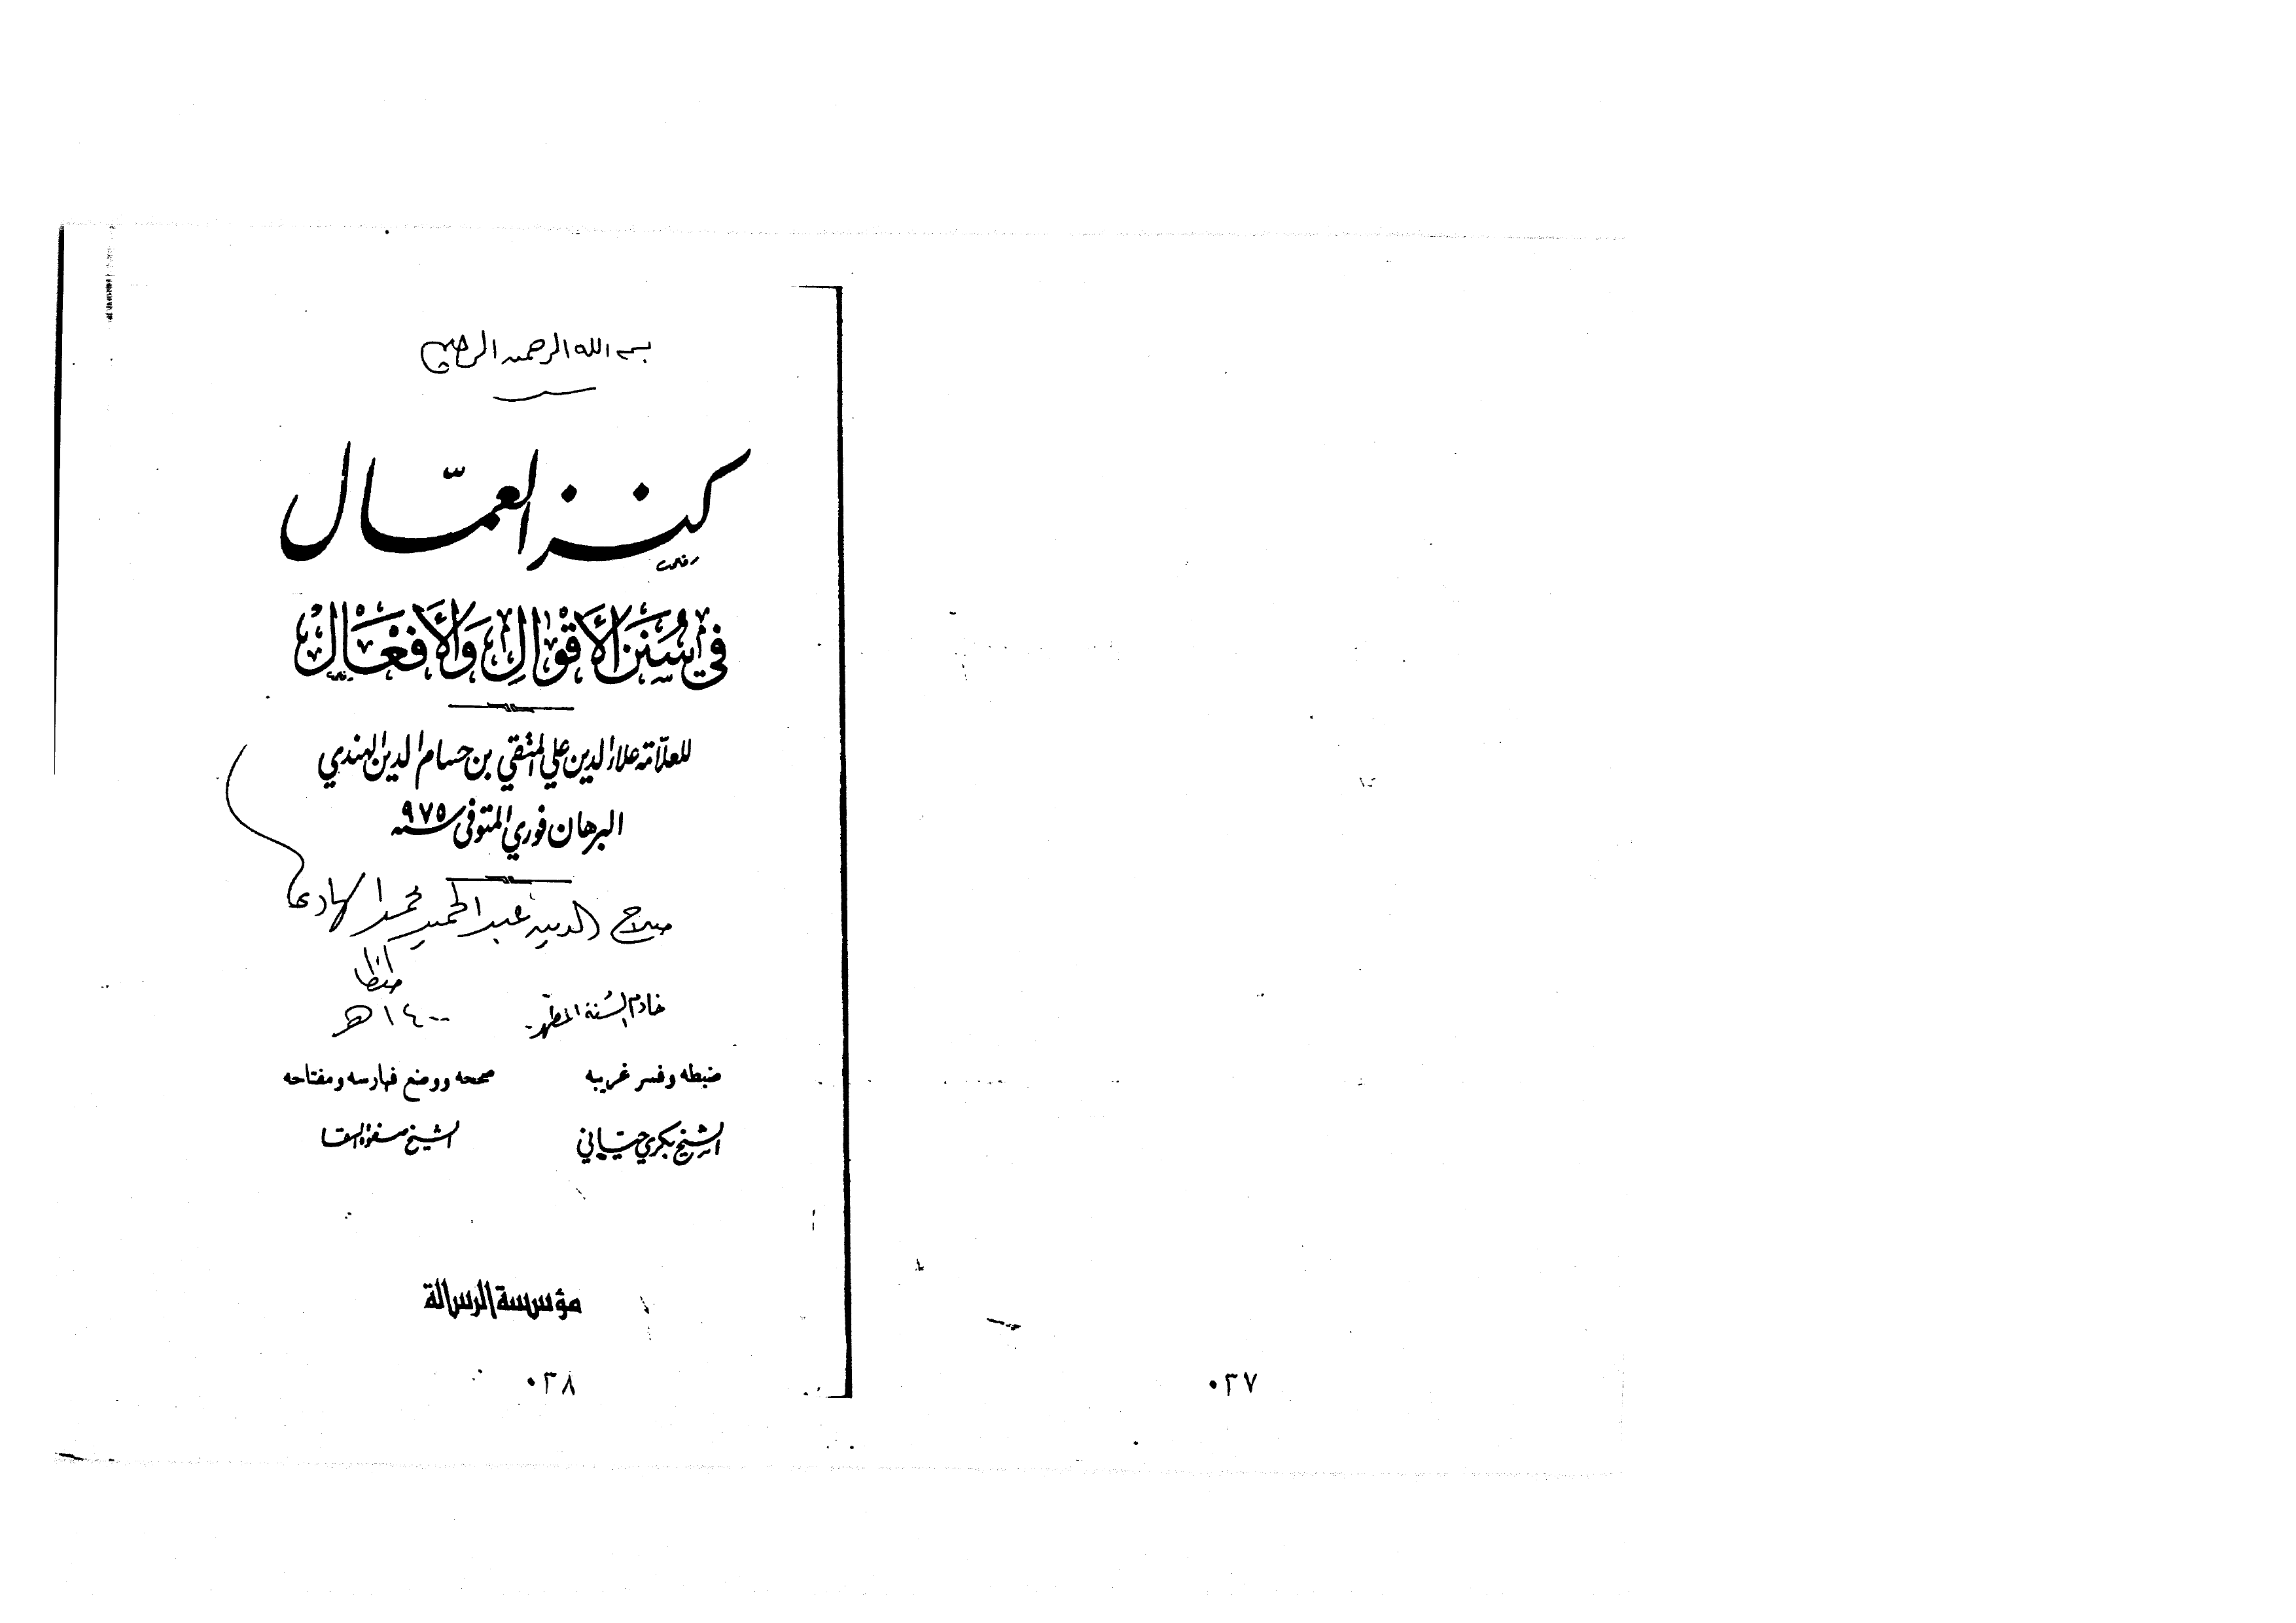 بسم الله الرحمن الرحيم
كنز العمّال
في سُنَنِ الأَقْوَالِ وَالأَفْعَال
للعلّامة علاء الدين علي المتقي بن حسام الدين الهندي
البرهان فوري المتوفى سنة ٩٧٥
صلاح الدين عبد الحميد محمد الهادي
طنطا
خادم السُنة المطهرة
١٤٠٠ هـ
ضبطه وفسر غريبه
صححه ووضع فهارسه ومفتاحه
الشيخ بكري حيّاني
الشيخ صفوة السقا
مؤسسة الرسالة
٠٣٨
٠٣٧